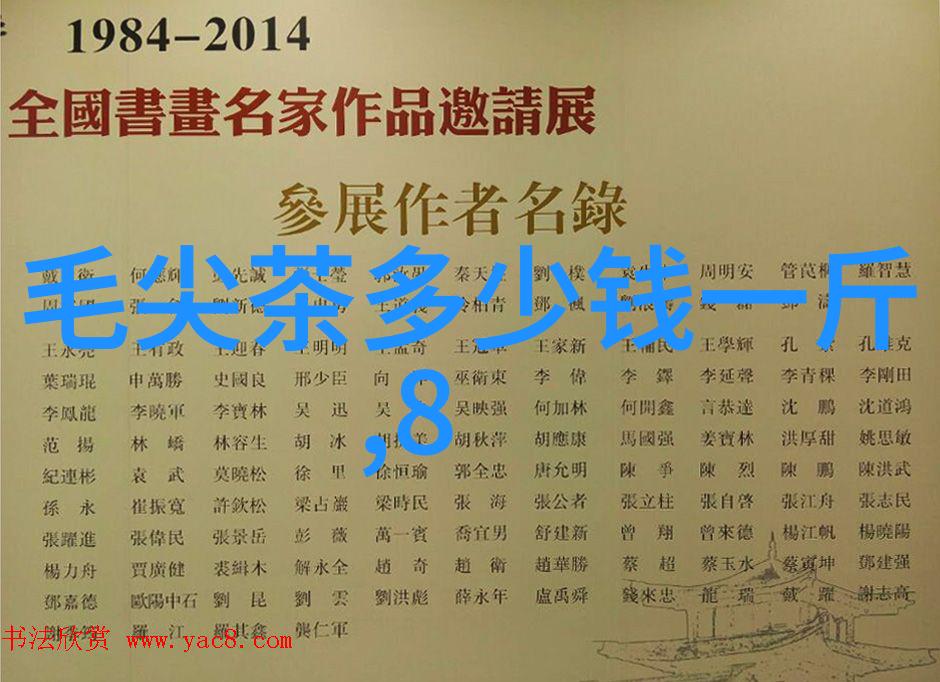 1984-2014
全國書畫名家作品邀請展
參展作者名錄
毛尖茶多少钱一斤
,8
周明安 羅智慧
王永亮 王有政 王迎春 王明明 王孟奇 王家新 王學輝
葉瑞琨 申萬勝 史國良 邢少臣 巫衛東 李偉 李鐸 李延聲 李青稞 李剛田
李鳳龍 李曉軍 李寶林 吳迅 吳映强 何加林 何開鑫 言恭達 沈鵬 沈道鴻
范揚 林嶠 林容生 胡冰 胡秋萍 胡應康 馬國强 姜寶林 洪厚甜 姚思敏
紀連彬 袁武 莫曉松 徐里 徐恒瑜 郭全忠 唐允明 陳爭 陳烈 陳鵬 陳洪武
孫永 崔振寬 許欽松 梁占巖 梁時民 張海 張公者 張立柱 張自啓 張江舟 張志民
張躍進 張偉民 張景岳 彭薇 萬一賓 喬宜男 舒建新 曾翔 曾來德 楊江帆 楊曉陽
楊力舟 賈廣健 裘緝木 解永全 趙奇 趙衛 趙華勝 蔡超 蔡玉水 蔡寅坤 鄧建强
鄧嘉德 歐陽中石 劉昆 劉雲 劉洪彪 薛永年 盧禹舜 錢來忠 龍瑞 戴躍 謝志高
羅江 羅其鑫 龔仁軍
书法欣赏 www.yac8.com